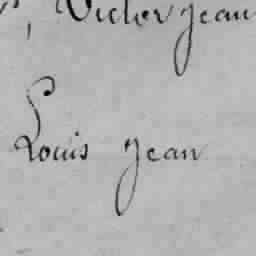 Victor Jean
Louis Jean